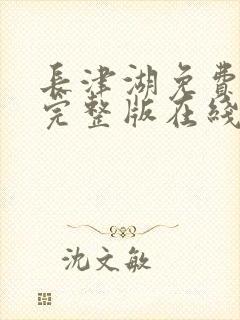 長津湖免費
完整版在綫
沈文敏